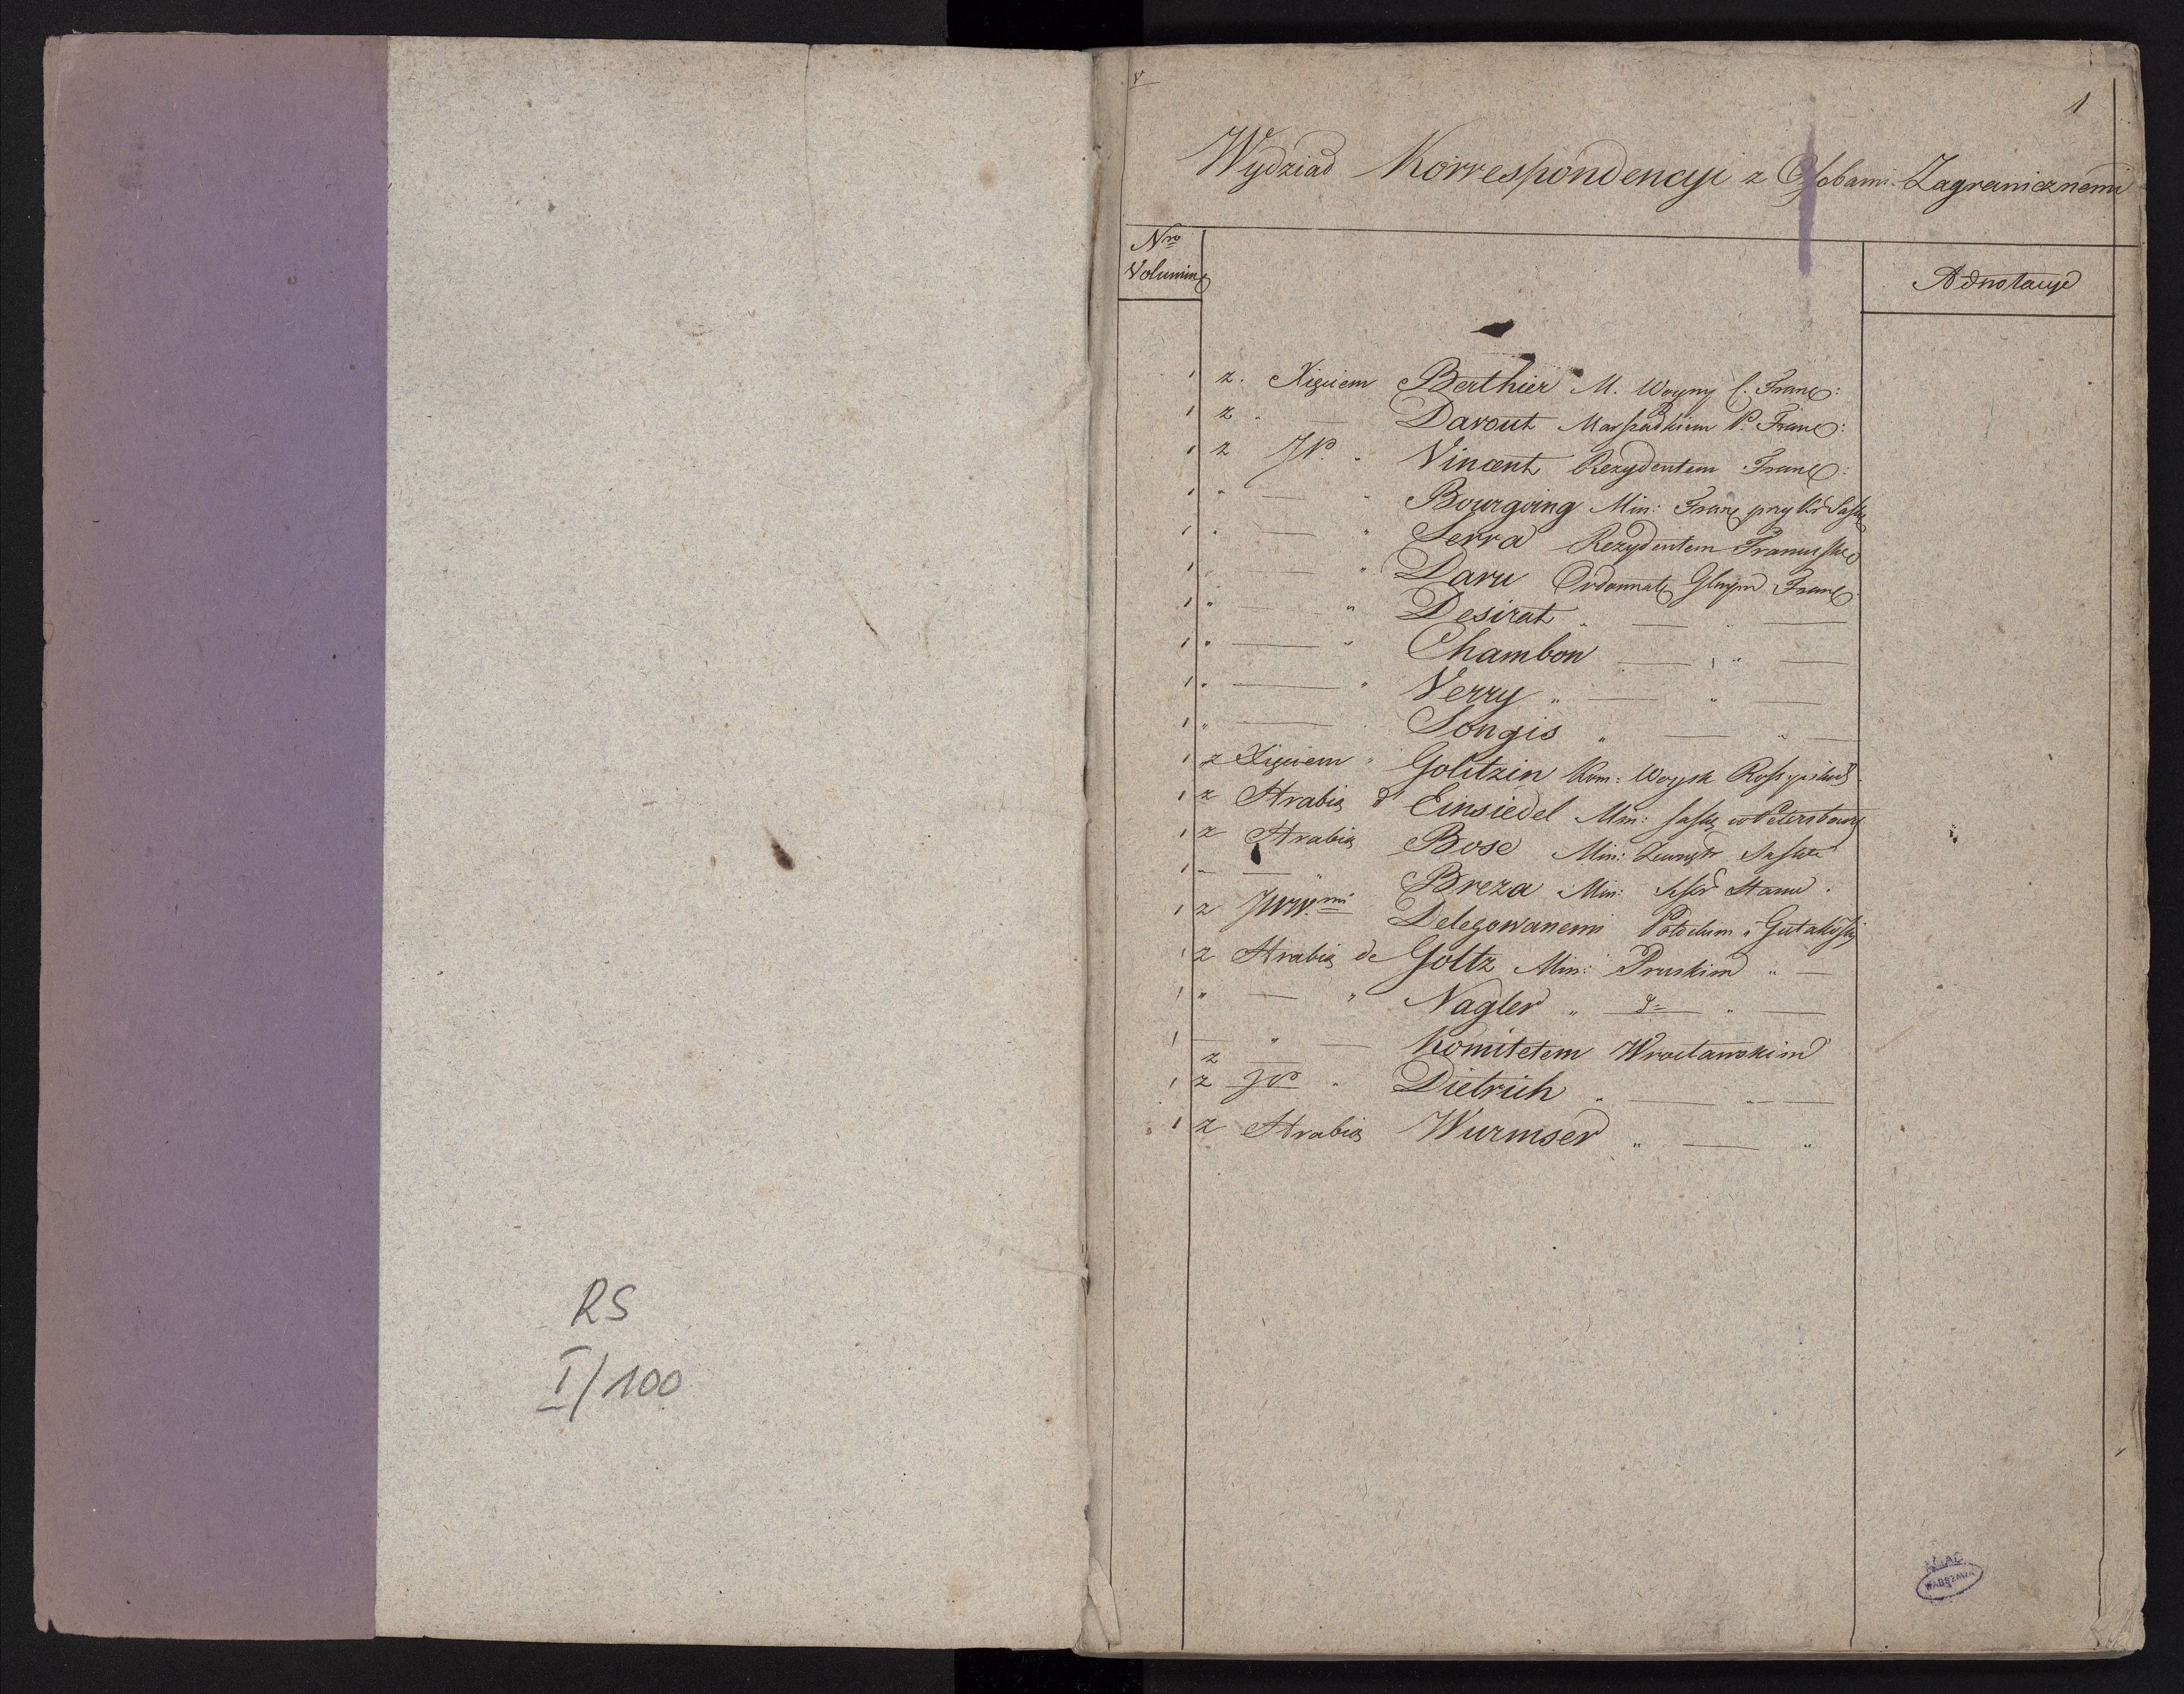 RS
I/100
1
Wydział Korrespondencyi z Osobami Zagranicznemi
Nro Volumin
Adnotacye
1 z. Xięciem Berthier M. Woyny C. Franc:
1 z. — Davout Marszałkiem P. Franc:
1 z JP. Vincent Rezydentem Franc:
1 " — " Bourgoing Min: Franc przy Kr Sask
1 " — " Serra Rezydentem Francuskim
1 " — " Daru Ordonnate Głnym Franc
1 " — " Desirat " — " —
1 " — " Chambon — " —
1 " — " Verry " — " —
1 " — Songis " — " —
1 z Xięciem " Golitzin Kom: Woysk Rossyiskich
1 z Hrabią d' Einsiedel Min: Sask w Petersburg
1 z Hrabią Bose Min: Zewnętr Saski
1 — — " Breza Min: Sekr Stanu.
1 z JWW.mi Delegowanemi Potockim i Gutakowskim
1 z Hrabią de Goltz Min: Pruskim " —
1 " — " Nagler " d= " —
1 — " — Komitetem Wrocławskim
1 z JP " Dietrich " — " —
1 z Hrabią Wurmser " — "
AGAD
WARSZAWA